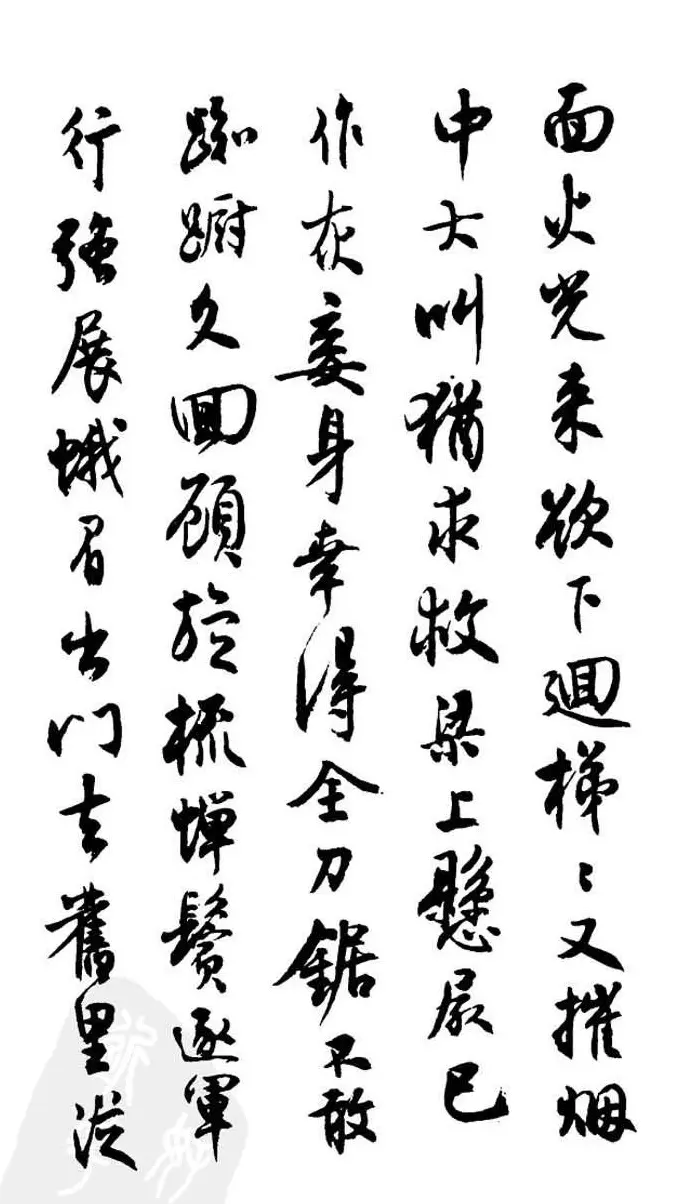 面火光来欲下迴梯〻又摧烟
中大叫猶求救梁上懸屍已
作灰妾身幸得全刀鋸不敢
踟躕久回顧旋梳蟬鬢逐軍
行強展蛾眉出門去舊里從